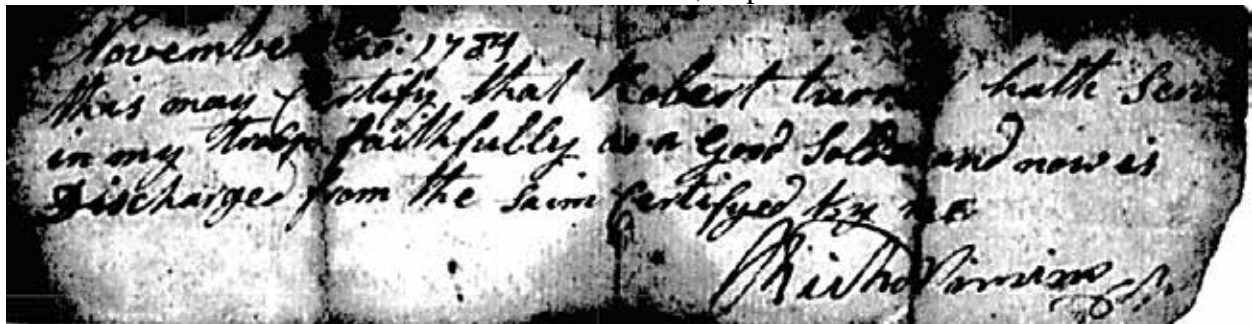 November 1784
this may Certify that Robert turner hath Serv
in my troop faithfully as a Good Soldier and now is
Discharged from the saim Certifyed by me
Richd